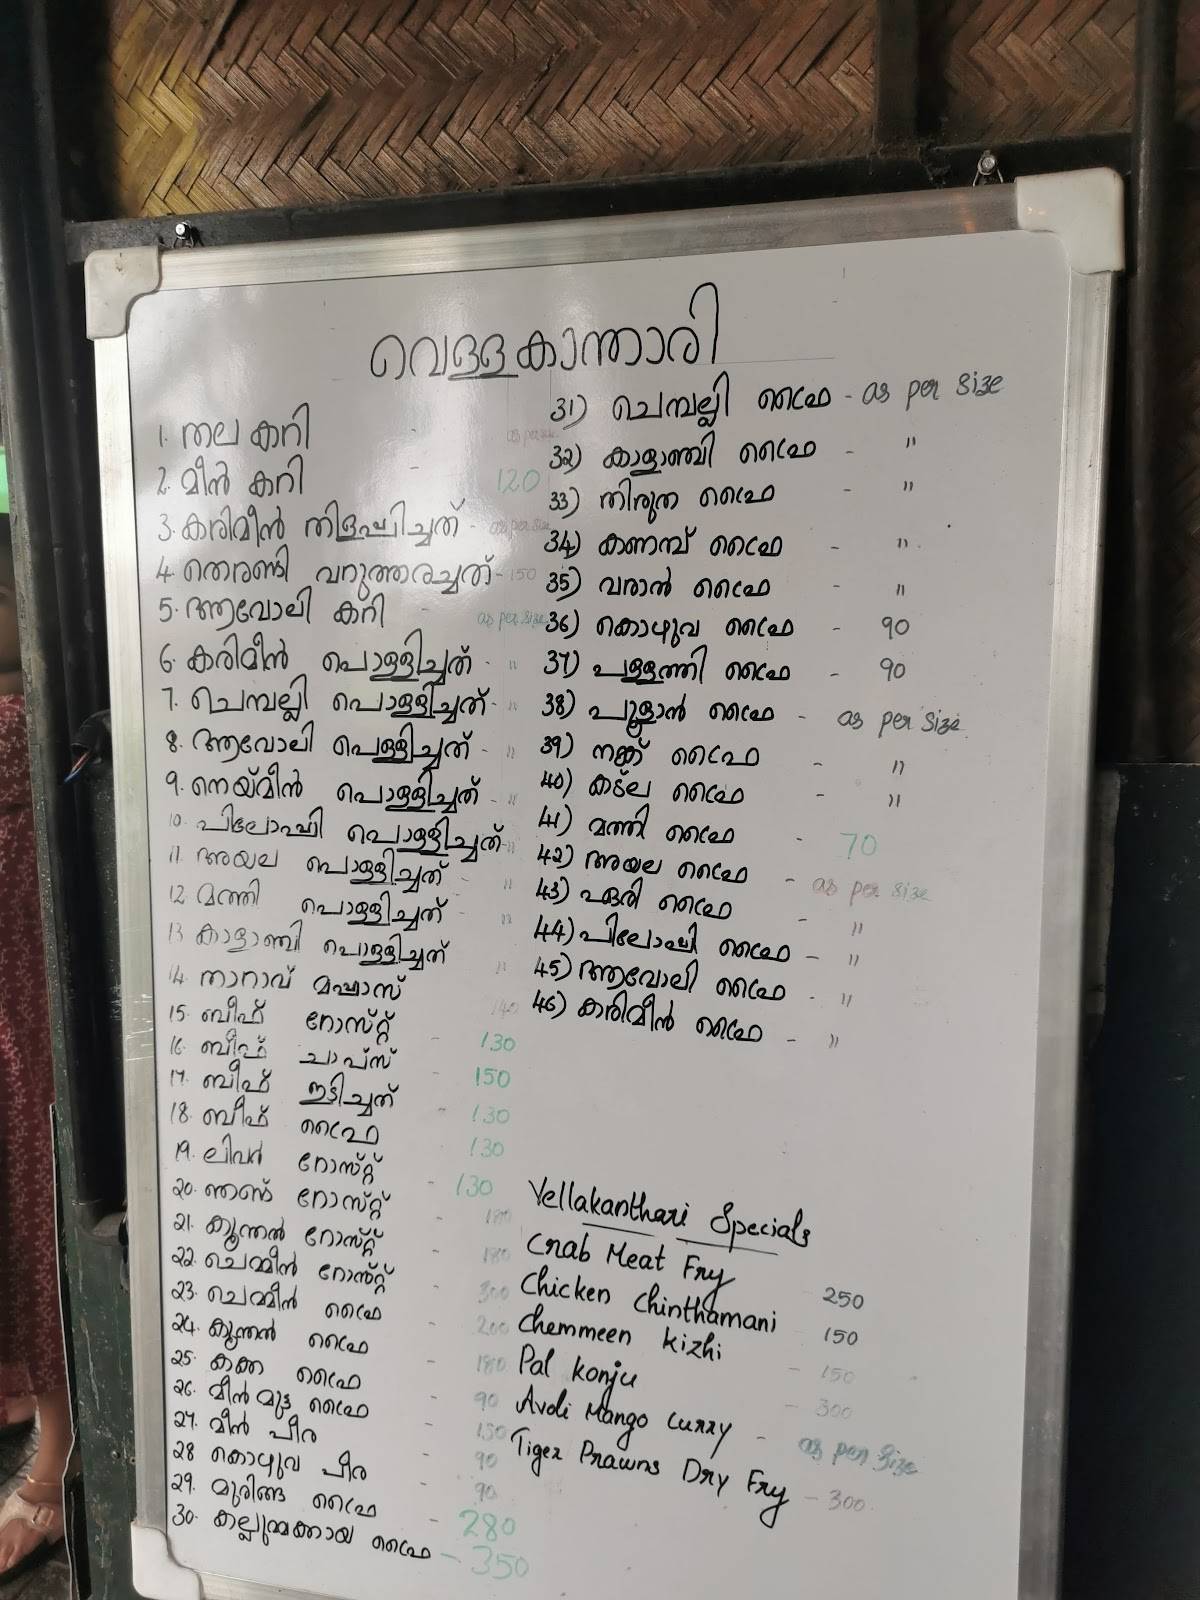 വെള്ളകാന്താരി
1. തല കറി - as per size
2. മീൻ കറി - 120
3. കരിമീൻ തിളപ്പിച്ചത് - as per size
4. തെരണ്ടി വറുത്തരച്ചത് - 150
5. ആവോലി കറി - as per size
6. കരിമീൻ പൊള്ളിച്ചത് - "
7. ചെമ്പല്ലി പൊള്ളിച്ചത് - "
8. ആവോലി പെള്ളിച്ചത് - "
9. നെയ്മീൻ പൊള്ളിച്ചത് - "
10. പിലോപ്പി പൊള്ളിച്ചത് - "
11. അയല പൊള്ളിച്ചത് - "
12. മത്തി പൊള്ളിച്ചത് - "
13 കാളാഞ്ചി പൊള്ളിച്ചത് "
14. താറാവ് മപ്പാസ് 140
15. ബീഫ് റോസ്റ്റ് - 130
16. ബീഫ് ചാപ്സ് - 150
17. ബീഫ് ഇടിച്ചത് - 130
18. ബീഫ് ഫ്രൈ 130
19. ലിവർ റോസ്റ്റ് - 130
20. ഞണ്ട് റോസ്റ്റ് - 180
21. കൂന്തൽ റോസ്റ്റ് - 180
22. ചെമ്മീൻ റോസ്റ്റ് - 300
23. ചെമ്മീൻ ഫ്രൈ 200
24. കൂന്തൽ ഫ്രൈ - 180
25. കക്ക ഫ്രൈ - 90
26. മീൻ മുട്ട ഫ്രൈ - 150
27. മീൻ പീര - 90
28 കൊഴുവ പീര - 90
29. മുരിങ്ങ ഫ്രൈ - 280
30. കല്ലുമ്മക്കായ ഫ്രൈ - 350
31) ചെമ്പല്ലി ഫ്രൈ - as per size
32) കാളാഞ്ചി ഫ്രൈ - "
33) തിരുത ഫ്രൈ - "
34) കണമ്പ് ഫ്രൈ - "
35) വരാൽ ഫ്രൈ - "
36) കൊഴുവ ഫ്രൈ - 90
37) പള്ളത്തി ഫ്രൈ - 90
38) പൂളാൻ ഫ്രൈ - as per size
39) നങ്ക് ഫ്രൈ - "
40) കട്ല ഫ്രൈ - "
41) മത്തി ഫ്രൈ - 70
42) അയല ഫ്രൈ - as per size
43) ഏരി ഫ്രൈ - "
44) പിലോപ്പി ഫ്രൈ - "
45) ആവോലി ഫ്രൈ - "
46) കരിമീൻ ഫ്രൈ - "
Vellakanthari Specials
Crab Meat Fry 250
Chicken Chinthamani 150
Chemmeen kizhi - 150
Pal konju - 300
Avoli Mango Curry - as per size
Tiger Prawns Dry Fry - 300